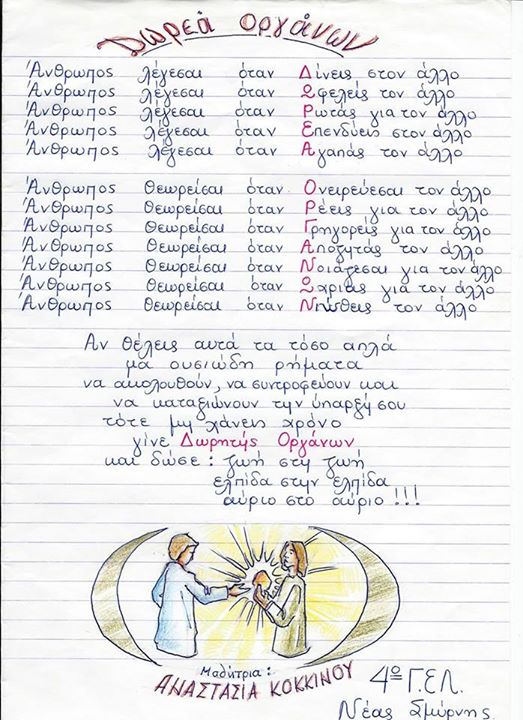 Δωρεά οργάνων
Άνθρωπος λέγεσαι όταν Δίνεις στον άλλο
Άνθρωπος λέγεσαι όταν Ωφελείς τον άλλο
Άνθρωπος λέγεσαι όταν Ρωτάς για τον άλλο
Άνθρωπος λέγεσαι όταν Επενδύεις στον άλλο
Άνθρωπος λέγεσαι όταν Αγαπάς τον άλλο
Άνθρωπος Θεωρείσαι όταν Ονειρεύεσαι τον άλλο
Άνθρωπος Θεωρείσαι όταν Ρέεις για τον άλλο
Άνθρωπος Θεωρείσαι όταν Γρηγορείς για τον άλλο
Άνθρωπος Θεωρείσαι όταν Αποζητάς τον άλλο
Άνθρωπος Θεωρείσαι όταν Νοιάζεσαι για τον άλλο
Άνθρωπος Θεωρείσαι όταν Ωχριάς για τον άλλο
Άνθρωπος Θεωρείσαι όταν Νιώθεις τον άλλο
Αν θέλεις αυτά τα τόσο απλά
μα ουσιώδη ρήματα
να ακολουθούν, να συντροφεύουν και
να καταξιώνουν την ύπαρξή σου
τότε μη χάνεις χρόνο
γίνε Δωρητής Οργάνων
και δώσε: ζωή στη ζωή
ελπίδα στην ελπίδα
αύριο στο αύριο!!!
Μαθήτρια:
ΑΝΑΣΤΑΣΙΑ ΚΟΚΚΙΝΟΥ
4ο Γ.Ε.Λ.
Νέας Σμύρνης